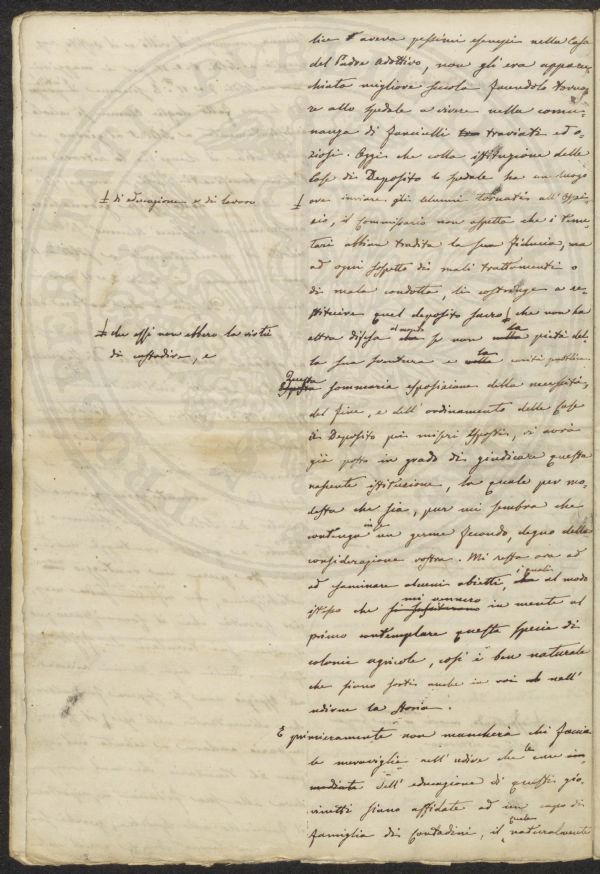 lice aveva pessimi esempi nella Casa
del Padre adottivo, non gli era apparec
chiata migliore scuola facendolo torna
re allo spedale a vivere nella comu
nanza di fanciulli traviati ed o
ziosi. Oggi che colla istituzione delle
Case di Deposito lo spedale ha un luogo
di educazione e di lavoro
ove inviare gli alunni tornati all'Ospi
zio, il Commissario non aspetta che i Tenu
tari abbian tradita la sua fiducia, ma
ad ogni sospetto di mali trattamenti o
di mala condotta, li costringe a re
stituire quel deposito sacro che non ha
che essi non ebbero la virtù
di custodire, e
altra difesa al mondo se non la pietà del
la sua sventura e la carità pubblica.
Questa sommaria esposizione della necessità,
del fine, e dell'ordinamento delle Case
di Deposito pei miseri Esposti, vi avrà
già posto in grado di giudicare questa
nascente istituzione, la quale per mo
desta che sia, pur mi sembra che
contenga in se un germe fecondo, degno della
considerazione vostra. Mi resta ora ad
ad esaminare alcuni obietti, i quali al modo
istesso che mi vennero in mente al
primo contemplare questa specie di
colonie agricole, così è ben naturale
che siano sorti anche in voi nell'
udirne la storia.
E primieramente non mancherà chi faccia
le meraviglie nell'udire che le cure im
mediate dell'educazione di questi gio
vinetti siano affidate ad un capo di
famiglia di Contadini, il quale naturalmente